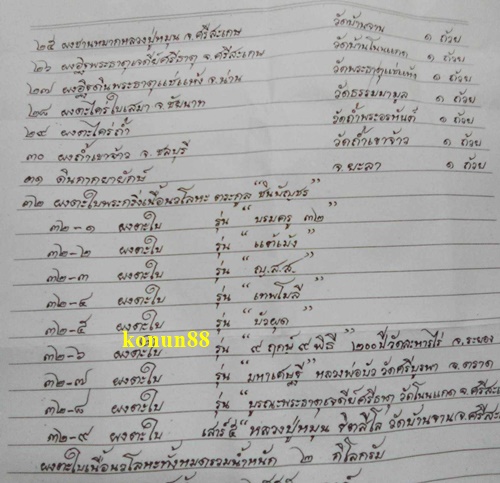 ๒๕ ผงชานหมากหลวงปู่หมุน จ.ศรีสะเกษ วัดบ้านจาน ๑ ถ้วย
๒๖ ผงอิฐพระธาตุเจดีย์ศรีธาตุ จ.ศรีสะเกษ วัดบ้านโนนแกด ๑ ถ้วย
๒๗ ผงอิฐดินพระธาตุแช่แห้ง จ.น่าน วัดพระธาตุแช่แห้ง ๑ ถ้วย
๒๘ ผงตะไคร่ใบเสมา จ.ชัยนาท วัดธรรมามูล ๑ ถ้วย
๒๙ ผงตะไคร่ถ้ำ วัดถ้ำพระอรหันต์ ๑ ถ้วย
๓๐ ผงถ้ำเขาจ้าว จ.ชลบุรี วัดถ้ำเขาจ้าว ๑ ถ้วย
๓๑ ดินกากยายักษ์ จ.ยะลา ๑ ถ้วย
๓๒ ผงตะไบพระกริ่งเนื้อนวโลหะ ตระกูล "ชินบัญชร"
๓๒-๑ ผงตะไบ รุ่น "บรมครู ๓๒"
๓๒-๒ ผงตะไบ รุ่น "แต้เม้ง"
๓๒-๓ ผงตะไบ รุ่น "ญ.ส.ส."
๓๒-๔ ผงตะไบ รุ่น "เทพโมลี"
๓๒-๕ ผงตะไบ รุ่น "บัวผุด"
konun88
๓๒-๖ ผงตะไบ รุ่น "๙ ฤกษ์ ๙ พิธี" ๒๐๐ปีวัดละหารไร่ จ.ระยอง
๓๒-๗ ผงตะไบ รุ่น "มหาเศรษฐี" หลวงพ่อบัว วัดศรีบูรพา จ.ตราด
๓๒-๘ ผงตะไบ รุ่น "บูรณะพระธาตุเจดีย์ศรีธาตุ วัดโนนแกด จ.ศรีสะเกษ
๓๒-๙ ผงตะไบ เสาร์๕ "หลวงปู่หมุน ฐิตสีโล วัดบ้านจาน(จ.ศรีสะเกษ
ผงตะไบเนื้อนวโลหะทั้งหมดรวมน้ำหนัก ๒ กิโลครับ